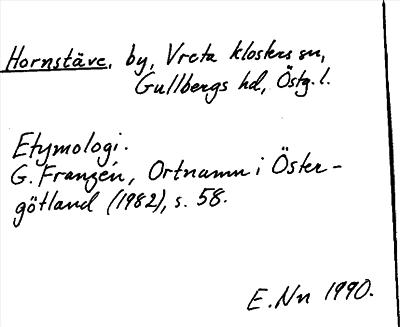 Hornstäve, by, Vreta klosters sn,
Gullbergs hd, Östg. l.
Etymologi.
G. Franzén, Ortnamn i Öster-
götland (1982), s. 58.
E. Nn 1990.